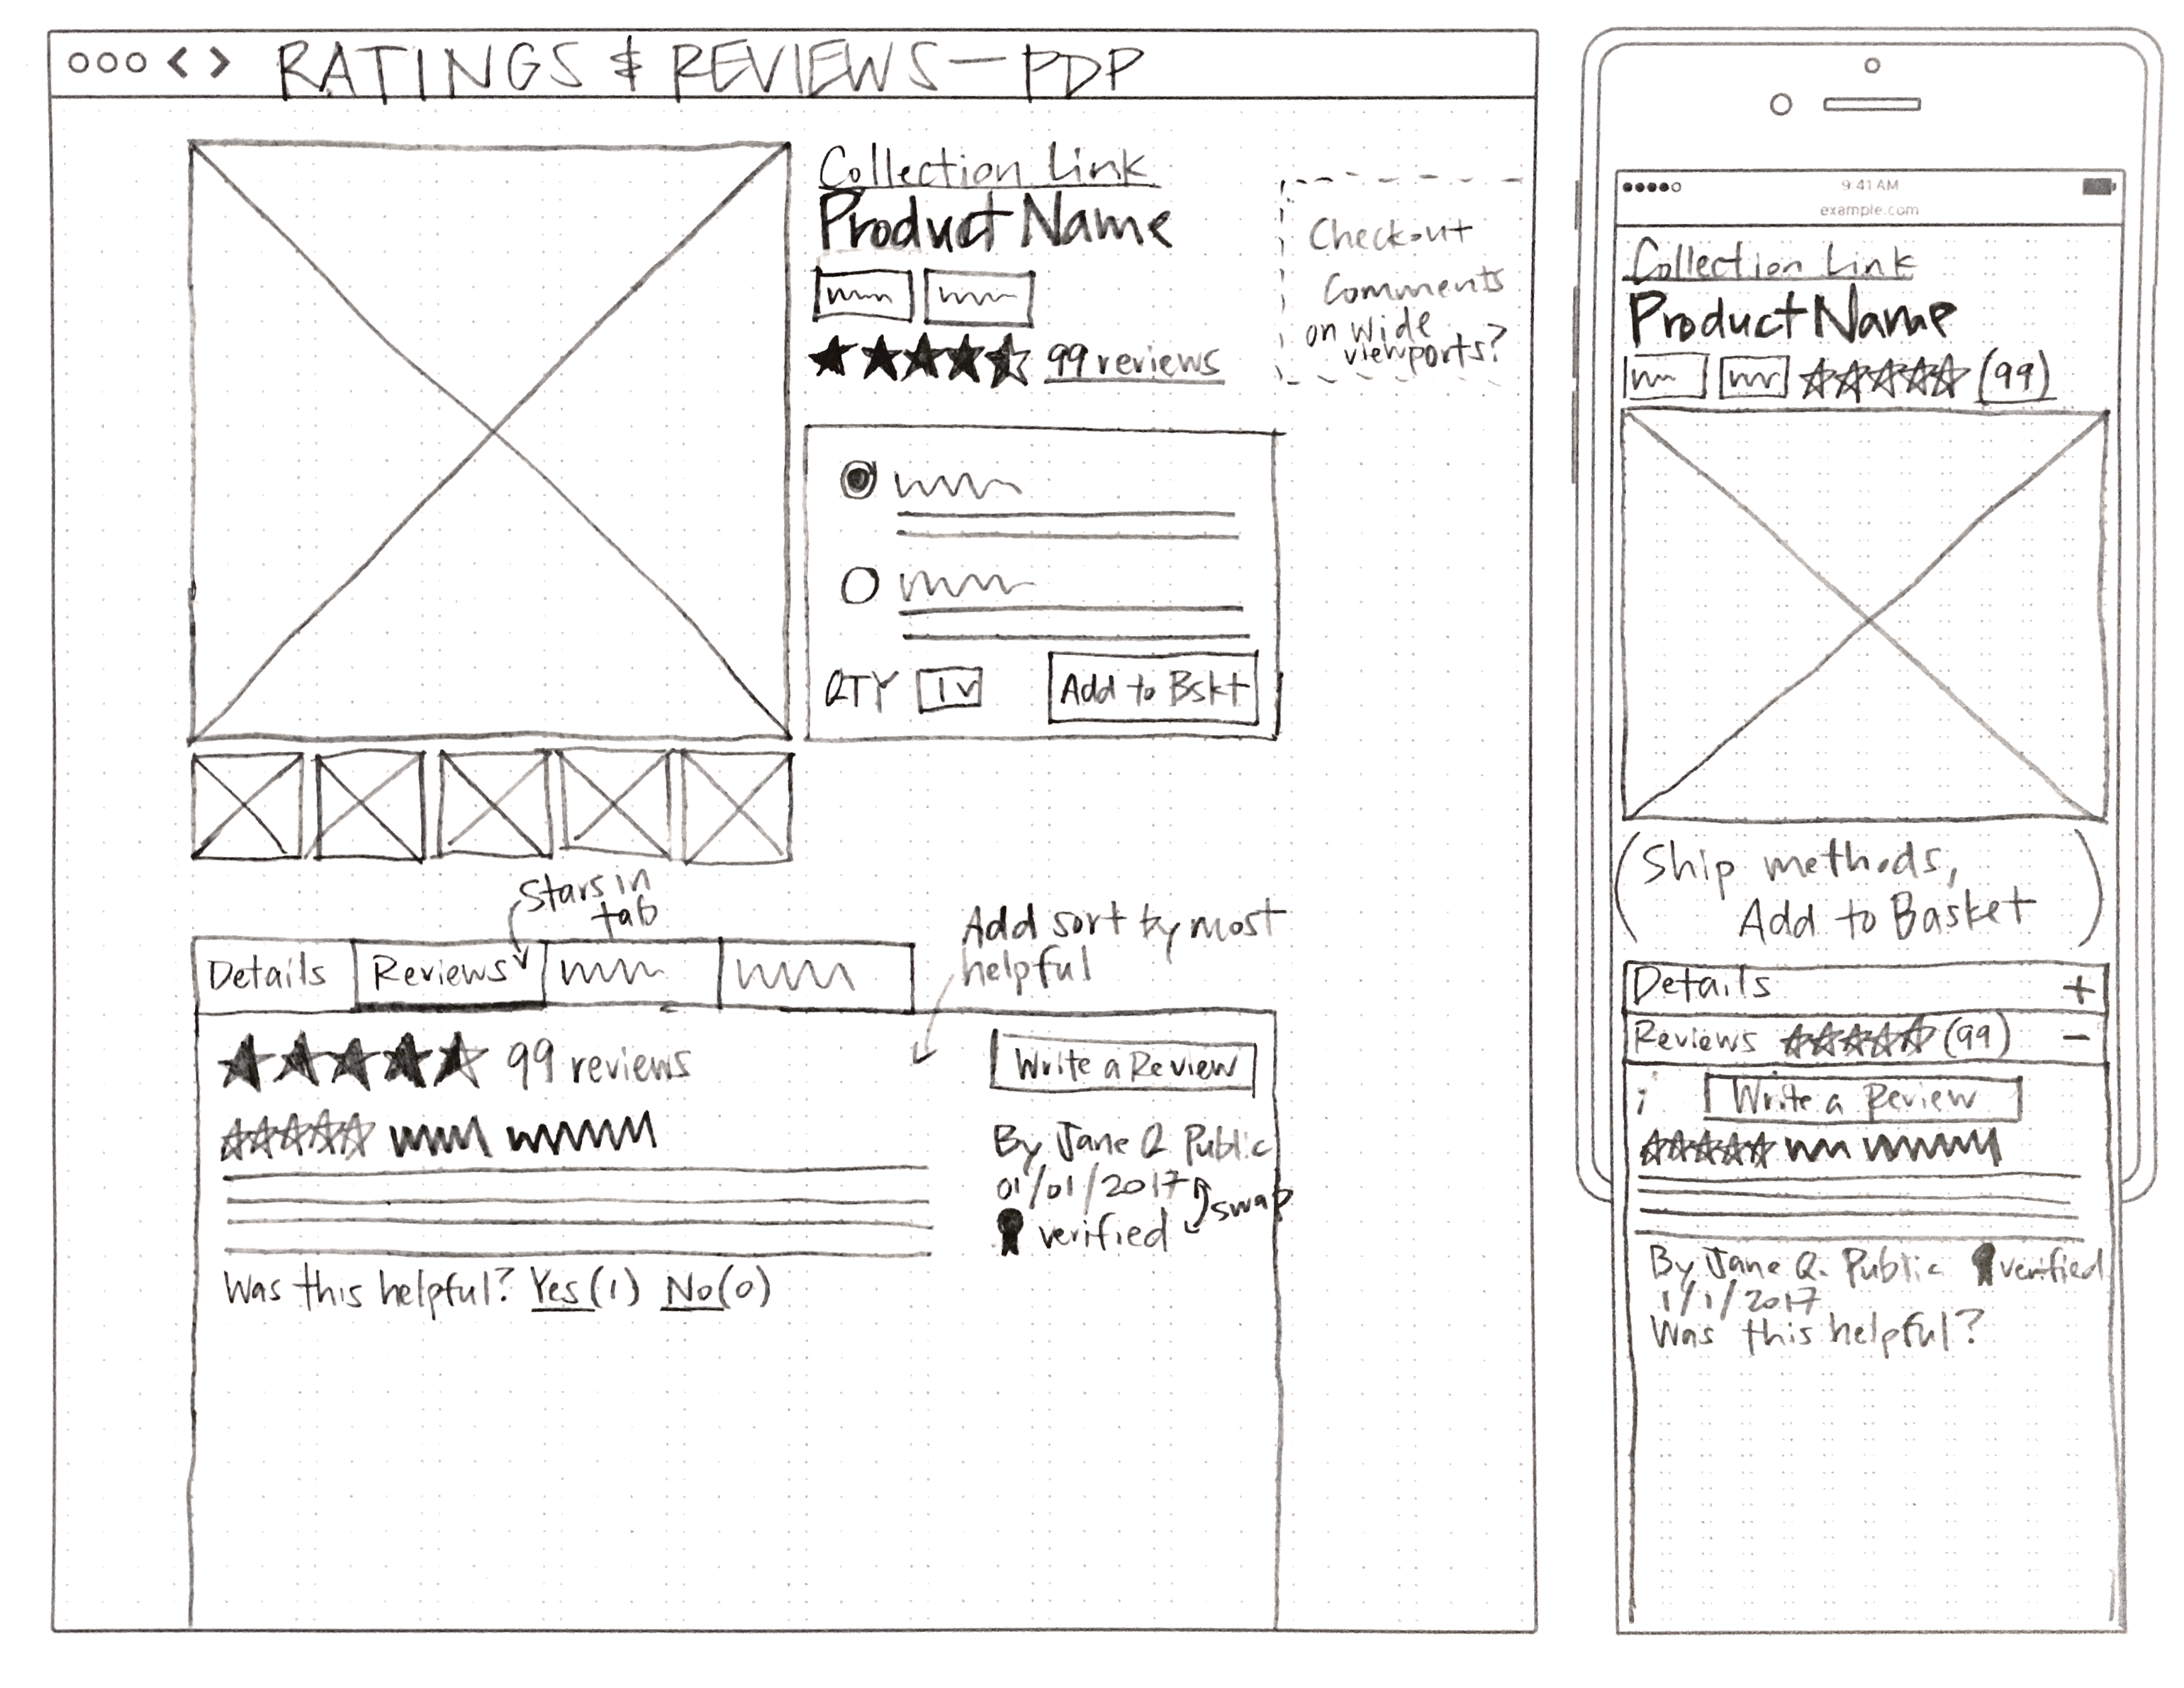 RATINGS & REVIEWS — PDP
Collection Link
Product Name
99 reviews
Checkout
Comments
on wide
viewports?
QTY 1 Add to Bskt
Stars in
tab
Add sort by most
helpful
Details Reviews
99 reviews
Write a Review
By Jane Q Public
01/01/2017
swap
verified
Was this helpful? Yes (1) No (0)
9:41 AM
example.com
Collection Link
Product Name
(99)
(Ship methods,
Add to Basket)
Details +
Reviews (99) −
Write a Review
By Jane Q. Public verified
1/1/2017
Was this helpful?